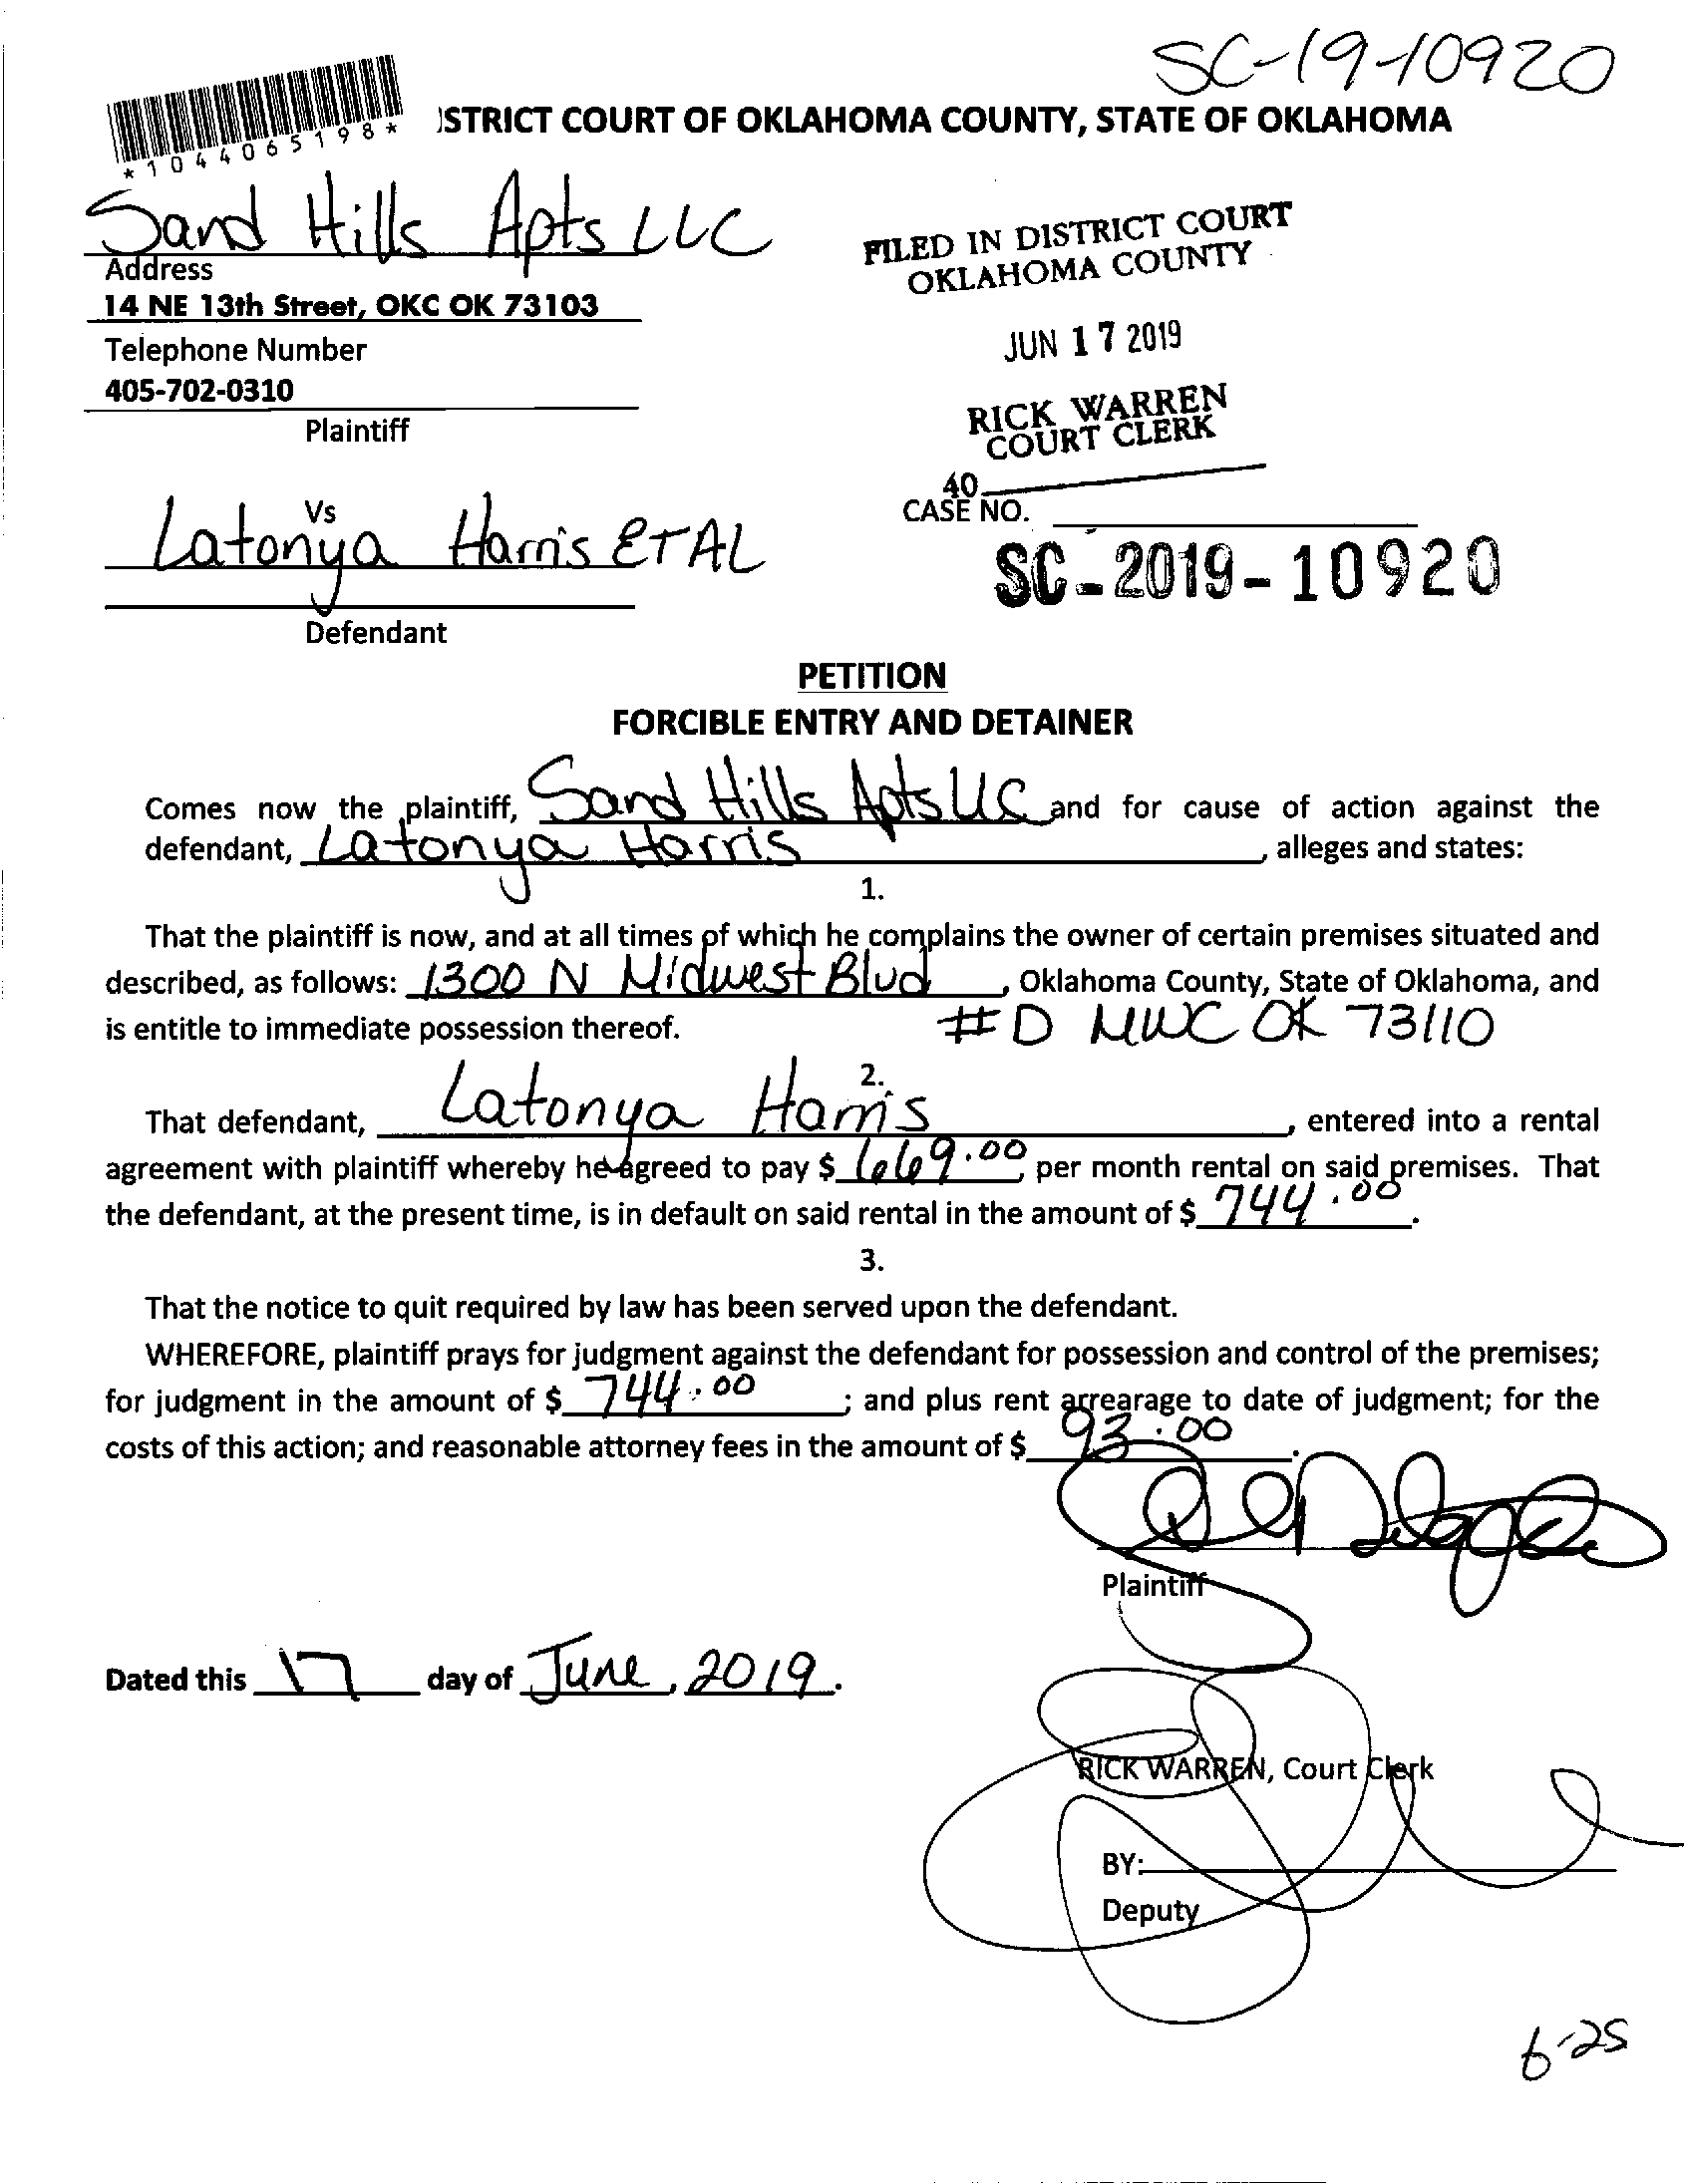 SC-19-10920
*1044065198*
ISTRICT COURT OF OKLAHOMA COUNTY, STATE OF OKLAHOMA
Sand Hills Apts LLC
Address
14 NE 13th Street, OKC OK 73103
Telephone Number
405-702-0310
Plaintiff
FILED IN DISTRICT COURT
OKLAHOMA COUNTY
JUN 17 2019
RICK WARREN
COURT CLERK
40
CASE NO.
SC-2019-10920
Vs
Latonya Harris ETAL
Defendant
PETITION
FORCIBLE ENTRY AND DETAINER
Comes now the plaintiff, Sand Hills Apts LLC and for cause of action against the
defendant, Latonya Harris, alleges and states:
1.
That the plaintiff is now, and at all times of which he complains the owner of certain premises situated and
described, as follows: 1300 N Midwest Blvd, Oklahoma County, State of Oklahoma, and
is entitle to immediate possession thereof. #D MWC OK 73110
2.
That defendant, Latonya Harris, entered into a rental
agreement with plaintiff whereby he agreed to pay $ 669.00, per month rental on said premises. That
the defendant, at the present time, is in default on said rental in the amount of $ 744.00.
3.
That the notice to quit required by law has been served upon the defendant.
WHEREFORE, plaintiff prays for judgment against the defendant for possession and control of the premises;
for judgment in the amount of $ 744.00; and plus rent arrearage to date of judgment; for the
costs of this action; and reasonable attorney fees in the amount of $ 93.00.
Plaintiff
Dated this 17 day of June, 2019.
RICK WARREN, Court Clerk
BY:
Deputy
6-25